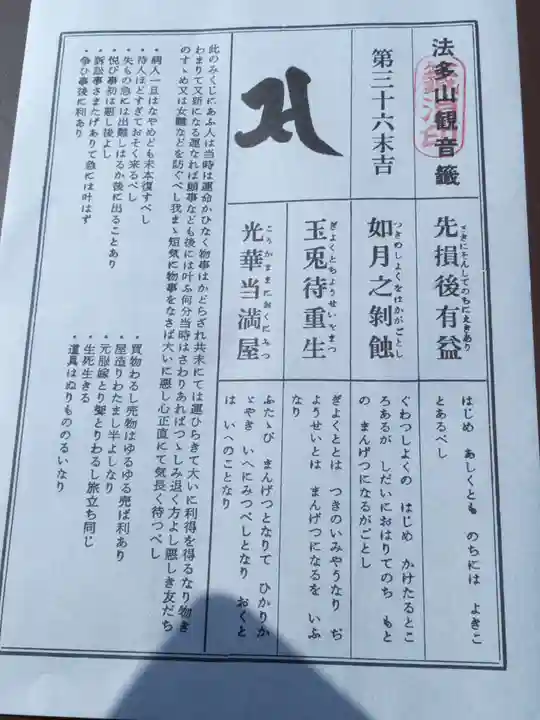 法多山観音籤
第三十六末吉
先損後有益
さきにそんしてのちにえきあり
はじめ あしくとも のちには よきこ
とあるべし
如月之剝蝕
つきのしよくをはがすがごとし
ぐわつしよくの はじめ かけたるとこ
ろあるが しだいにおはりてのち もと
の まんげつになるがごとし
玉兎待重生
ぎよくとちようせいをまつ
ぎよくととは つきのいみやうなり ぢ
ようせいとは まんげつになるを いふ
なり
光華当満屋
こうかまさにおくにみつ
ふたゝび まんげつとなりて ひかりか
ゞやき いへにみつべしとなり おくと
は いへのことなり
此のみくじにあふ人は当時は運命かひなく物事はかどらざれ共末にては運ひらきて大いに利得を得るなり物き
わまりて又新になる運なれば願事なども後には叶ふ何分当時はさわりあればつゝしみ退く方よし悪しき友だち
のすゝめ又は女難などを防ぐべし我まゝ短気に物事をなさば大いに悪し心正直にて気長く待つべし
・病人一旦はなやめども末本復すべし
・待人ほどすぎておそく来るべし
・失もの急には出難しはるか後に出ることあり
・悦び事初は悪し後よし
・訴訟事さまたげありて急には叶はず
・争ひ事後に利あり
・買物わるし売物はゆるゆる売ば利あり
・屋造りわたまし半よしなり
・元服嫁とり聟とりわるし旅立ち同じ
・生死生きる
・道具はぬりもののるいなり